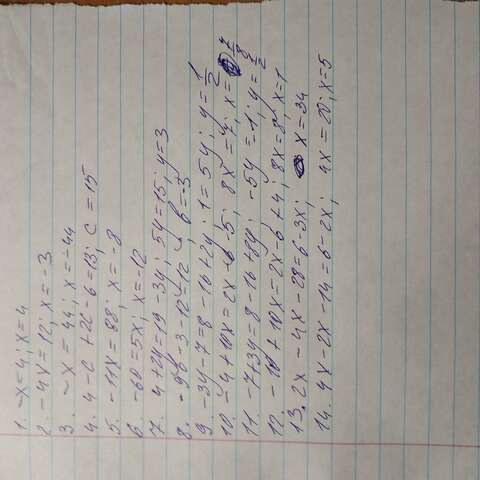 1. -x=4; x=4
2. -4x=12; x=-3
3. -x=44; x=-44
4. 4-c+2c-6=13; c=15
5. -11x=88; x=-8
6. -60=5x; x=-12
7. 4+2y=19-3y; 5y=15; y=3
8. -9b-3-12=12 b=-3
9. -3y-7=8-16+2y; 1=5y; y=1/2
10. -4+10x=2x-6-5; 8x=7; x=7/8
11. -7+3y=8-16+8y; -5y=-1; y=1/2
12. -10+10x=2x-6+4; 8x=8; x=1
13. 2x-4x-28=6-3x; x=34
14. 4x-2x-14=6-2x; 4x=20; x=5